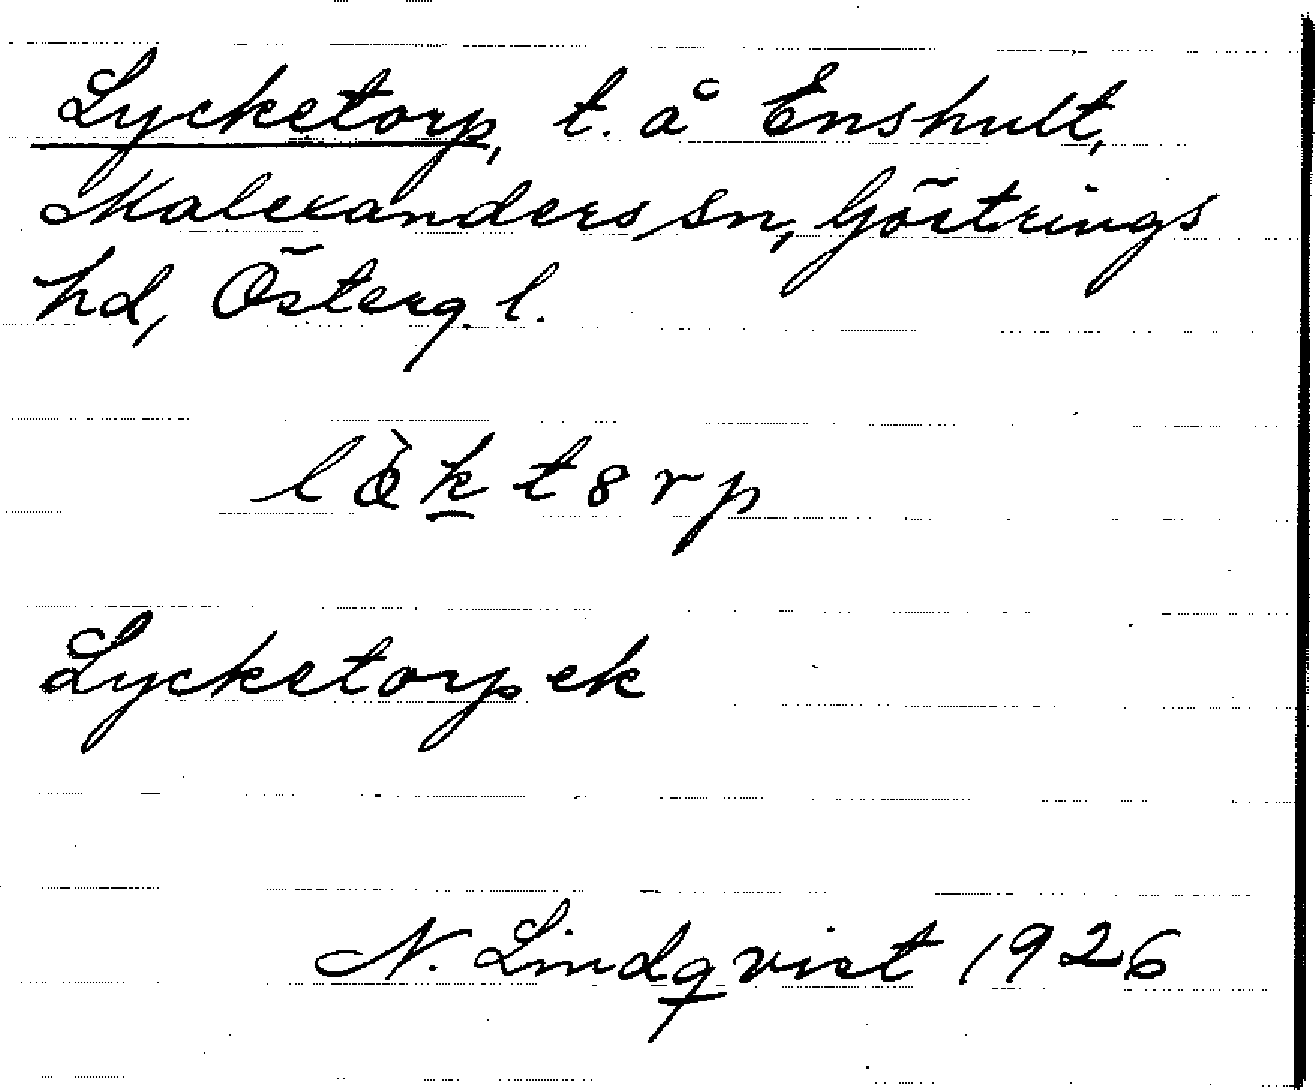 Lycketorp, t. å Enshult,
Malexanders sn, Göstrings
hd, Österg. l.
lø̀k̲t8rp
Lycketorp ek
N. Lindqvist 1926